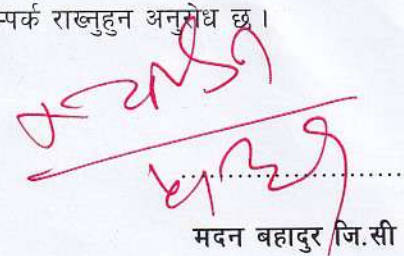 म्पर्क राख्नुहुन अनुरोध छ ।
....................
मदन बहादुर जि.सी